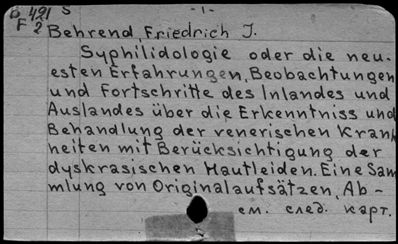 G 421 S - 1 -
F 2
Behrend, Friedrich J.
Syphilidologie oder die neu-
esten Erfahrungen, Beobachtungen
und Fortschritte des Inlandes und
Auslandes über die Erkenntniss und
Behandlung der venerischen Krank
heiten mit Berücksichtigung der
dyskrasischen Hautleiden. Eine Sam
mlung von Originalaufsätzen, Ab-
см. след. карт.